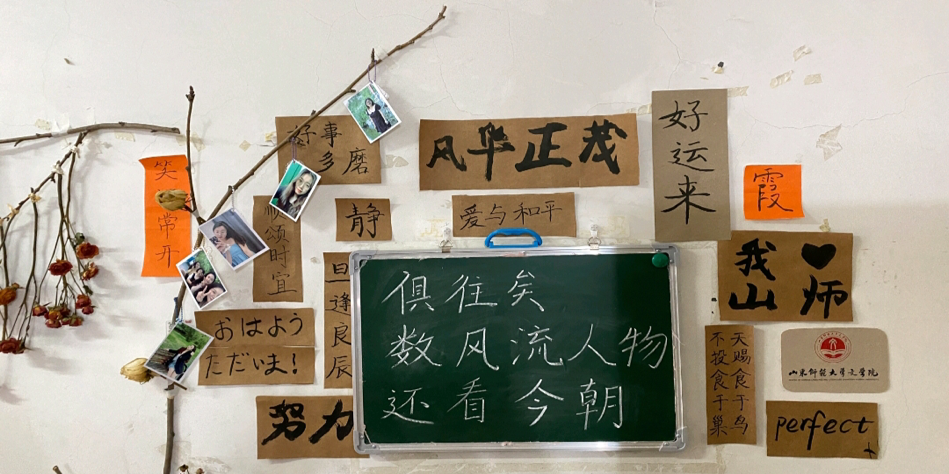 笑口常开
好事
多磨
顺颂时宜
静
风华正茂
爱与和平
好运来
霞
我♥
山师
おはよう
ただいま!
旦逢良辰
努力
俱往矣
数风流人物
还看今朝
天赐食于鸟
不投食于巢
山东师范大学文学院
perfect